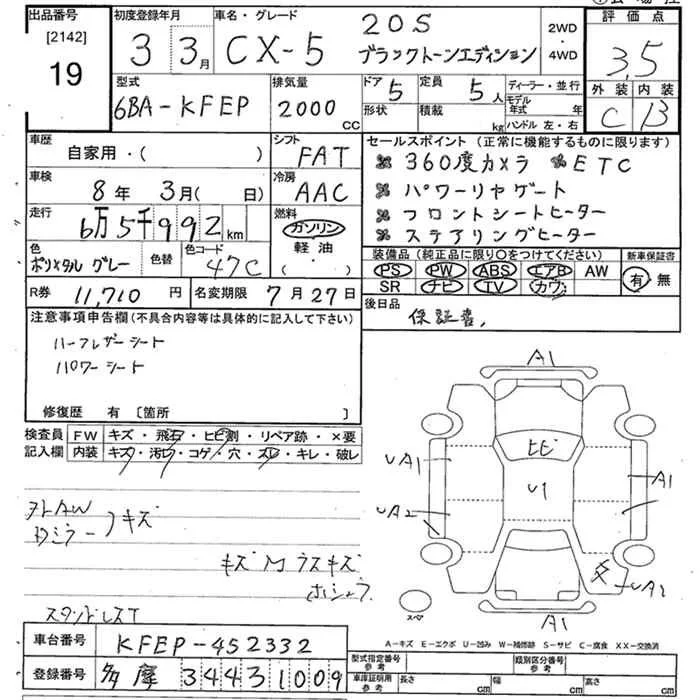 出品番号 初度登録年月 車名・グレード 評価点
[2142] 19
3 3月 CX-5 20S ブラックトーンエディション 2WD・4WD 3,5
外装 内装
C B
型式 排気量 ドア 定員 ディーラー・並行
6BA-KFEP 2000CC 5 5人 モデル年式 年
形状 積載 kg ハンドル 左・右
車歴 シフト セールスポイント (正常に機能するものに限ります)
自家用・( ) FAT
360度カメラ ETC
パワーリヤゲート
フロントシートヒーター
ステアリングヒーター
車検 冷房
8年 3月( 日) AAC
走行 燃料
6万5千992km ガソリン 軽油 ・( )
色 色替 色コード
ポリメタル グレー 47C
装備品 (純正品に限り○をつけてください) 新車保証書
PS PW ABS エアB AW 有・無
SR ナビ TV カワ
R券 11,710円 名変期限 7月27日
後日品
保証書,
注意事項申告欄(不具合内容等は具体的に記入して下さい)
ハーフレザーシート
パワーシート
修復歴 有 [箇所 ]
検査員記入欄 FW キズ・飛石・ヒビ割・リペア跡・×要
内装 キズ・汚レ・コゲ・穴・スレ・キレ・破レ
A1
ヒビ
UA1
U1
A1
UA2
UA2
A1
スペア
キズ
スタンドレスT
A-キズ E-エクボ U-凹み W-補修跡 S-サビ C-腐食 XX-交換済
車台番号 KFEP-452332
登録番号 多摩 344 3 1009
型式指定番号参考 類別区分番号参考
車庫証明用参考 長さ cm 幅 cm 高さ cm